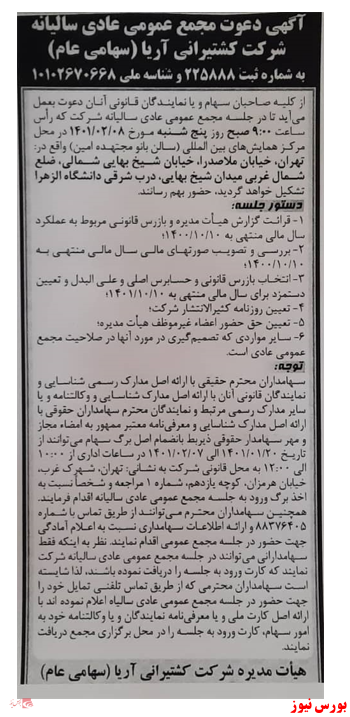 آگهی دعوت مجمع عمومی عادی سالیانه
شرکت کشتیرانی آریا (سهامی عام)
به شماره ثبت ۲۲۵۸۸۸ و شناسه ملی ۱۰۱۰۲۶۷۰۶۶۸
از کلیه صاحبان سهام و یا نمایندگان قانونی آنان دعوت بعمل
می‌آید تا در جلسه مجمع عمومی عادی سالیانه شرکت که رأس
ساعت ۹:۰۰ صبح روز پنج شنبه مورخ ۱۴۰۱/۰۲/۰۸ در محل
مرکز همایش‌های بین المللی (سالن بانو مجتهده امین) واقع در:
تهران، خیابان ملاصدرا، خیابان شیخ بهایی شمالی، ضلع
شمال غربی میدان شیخ بهایی، درب شرقی دانشگاه الزهرا
تشکیل خواهد گردید، حضور بهم رسانند.
دستور جلسه:
۱- قرائت گزارش هیأت مدیره و بازرس قانونی مربوط به عملکرد
سال مالی منتهی به ۱۴۰۰/۱۰/۱۰؛
۲- بررسی و تصویب صورتهای مالی سال مالی منتهی به
۱۴۰۰/۱۰/۱۰؛
۳- انتخاب بازرس قانونی و حسابرس اصلی و علی البدل و تعیین
دستمزد برای سال مالی منتهی به ۱۴۰۱/۱۰/۱۰؛
۴- تعیین روزنامه کثیرالانتشار شرکت؛
۵- تعیین حق حضور اعضاء غیرموظف هیأت مدیره؛
۶- سایر مواردی که تصمیم‌گیری در مورد آنها در صلاحیت مجمع
عمومی عادی است.
توجه:
سهامداران محترم حقیقی با ارائه اصل مدارک رسمی شناسایی و
نمایندگان قانونی آنان با ارائه اصل مدارک شناسایی و وکالتنامه و یا
سایر مدارک رسمی مرتبط و نمایندگان محترم سهامداران حقوقی با
ارائه اصل مدارک شناسایی و معرفی‌نامه معتبر ممهور به امضاء مجاز
و مهر سهامدار حقوقی ذیربط بانضمام اصل برگ سهام می‌توانند از
تاریخ ۱۴۰۱/۰۱/۲۰ الی ۱۴۰۱/۰۲/۰۷ در ساعات اداری از ۱۰:۰۰
الی ۱۲:۰۰ به محل قانونی شرکت به نشانی: تهران، شهرک غرب،
خیابان هرمزان، کوچه یازدهم، شماره ۱ مراجعه و شخصاً نسبت به
اخذ برگ ورود به جلسه مجمع عمومی عادی سالیانه اقدام فرمایند.
همچنین سهامداران محترم می‌توانند از طریق تماس با شماره
۸۸۳۷۶۴۰۵ و ارائه اطلاعات سهامداری نسبت به اعلام آمادگی
جهت حضور در جلسه مجمع عمومی اقدام نمایند. نظر به اینکه فقط
سهامدارانی می‌توانند در جلسه مجمع عمومی عادی سالیانه شرکت
نمایند که کارت ورود به جلسه را دریافت نموده باشند، لذا شایسته
است سهامداران محترمی که از طریق تماس تلفنی تمایل خود را
جهت حضور در جلسه مجمع عمومی عادی سالیاه اعلام نموده اند با
ارائه اصل کارت ملی و یا معرفی‌نامه نمایندگان و یا وکالتنامه خود به
امور سهام، کارت ورود به جلسه را در محل برگزاری مجمع دریافت
نمایند.
هیأت مدیره شرکت کشتیرانی آریا (سهامی عام)
بورس نیوز